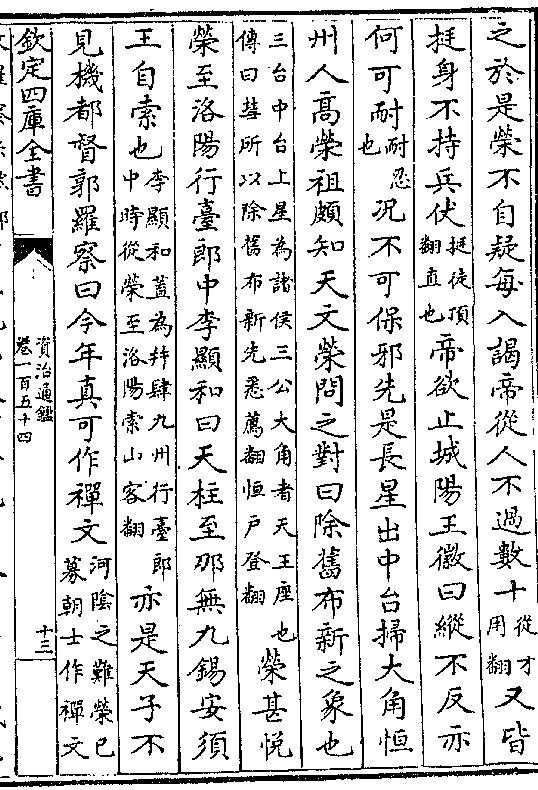 之於是榮不自疑每入謁帝從人不過數十從才用翻又皆
挺身不持兵仗挺徒頂翻直也帝欲止城陽王徽曰縱不反亦
何可耐耐忍也况不可保邪先是長星出中台掃大角恒
州人高榮祖頗知天文榮問之對曰除舊布新之象也
三台中台上星為諸侯三公大角者天王座也傳曰彗所以除舊布新先悉薦翻恒戸登翻榮甚悦
榮至洛陽行臺郎中李顯和曰天柱至那無九錫安須
王自索也李顯和蓋為并肆九州行臺郎中時從榮至洛陽索山客翻亦是天子不
見機都督郭羅察曰今年真可作禪文河隂之難榮已募朝士作禪文
欽定四庫全書
資治通鑑
卷一百五十四
十三